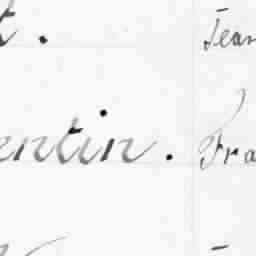 t. Jean
entin. Fra